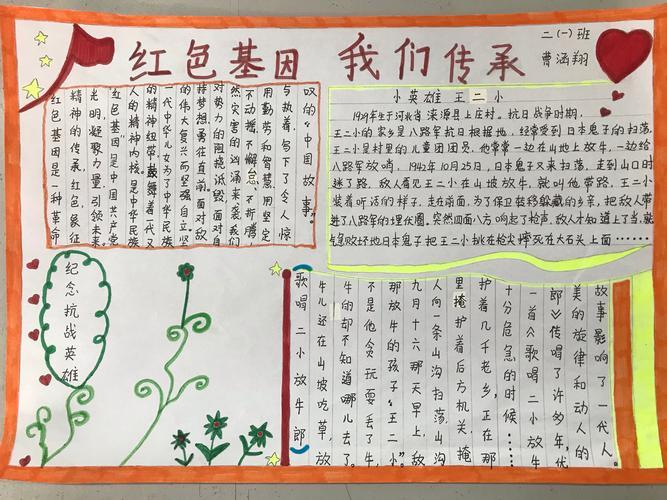 红色基因 我们传承
二(一)班
曹涵翔
红色基因是一种革命
精神的传承,红色象征
光明,凝聚力量,引领未来。
"红色基因"是中国共产党
人的精神内核,是中华民族
的精神纽带,鼓舞着一代又
一代中华儿女为了中华民族
的伟大复兴而坚强自立,坚
持梦想,勇往直前,面对敌
对势力的阻挠诋毁,面对自
然灾害的汹涌来袭,我们
不动摇,不懈怠,不折腾,
用勤劳和智慧,用坚定
与执着,写下了令人惊
叹的"中国故事"。
小英雄 王二小
1929年生于河北省涞源县上庄村。抗日战争时期,
王二小的家乡是八路军抗日根据地,经常受到日本鬼子的扫荡,
王二小是村里的儿童团团员,他常常一边在山上放牛,一边给
八路军放哨。1942年10月25日,日本鬼子又来扫荡,走到山口时
迷了路,敌人看见王二小在山坡放牛,就叫他带路。王二小
装着听话的样子,走在前面,为了保卫转移躲藏的乡亲,把敌人带
进了八路军的埋伏圈。突然四面八方响起了枪声,敌人才知道上了当,就
气急败坏地日本鬼子把王二小挑在枪尖摔死在大石头上面……
纪念抗战英雄
歌唱二小放牛郎
牛儿还在山坡吃草,放
牛的却不知道哪儿去了。
不是他贪玩耍丢了牛,
那放牛的孩子王二小。
九月十六那天早上,敌
人向一条山沟扫荡,山沟
里掩护着后方机关,掩
护着几千老乡。正在那
十分危急的时候……
一首《歌唱二小放牛
郎》传唱了许多年,优
美的旋律和动人的
故事影响了一代人。